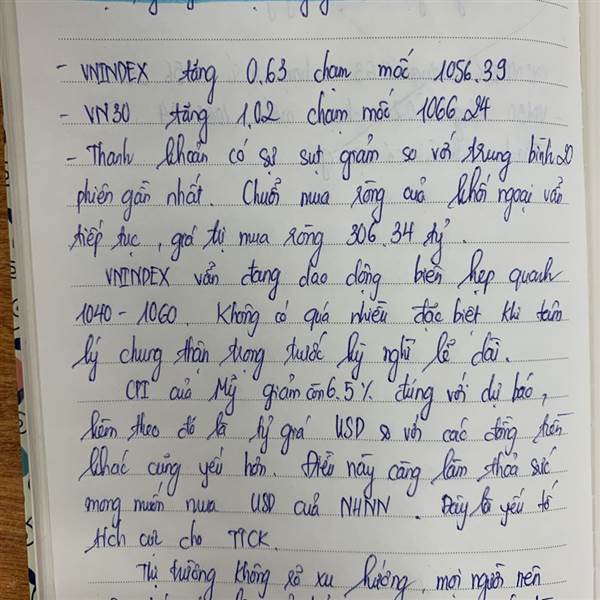 - VNINDEX tăng 0.63 chạm mốc 1056.39
- VN30 tăng 1.02 chạm mốc 1066.24
- Thanh khoản có sự sụt giảm so với trung bình 20
phiên gần nhất. Chuỗi mua ròng của khối ngoại vẫn
tiếp tục, giá trị mua ròng 306.34 tỷ.
VNINDEX vẫn đang dao động biên hẹp quanh
1040 - 1060. Không có quá nhiều đặc biệt khi tâm
lý chung thận trọng trước kỳ nghỉ lễ dài.
CPI của Mỹ giảm còn 6.5% đúng với dự báo,
kèm theo đó là tỷ giá USD so với các đồng tiền
khác cũng yếu hơn. Điều này càng làm thỏa sức
mong muốn mua USD của NHNN. Đây là yếu tố
tích cực cho TTCK.
Thị trường không rõ xu hướng, mọi người nên